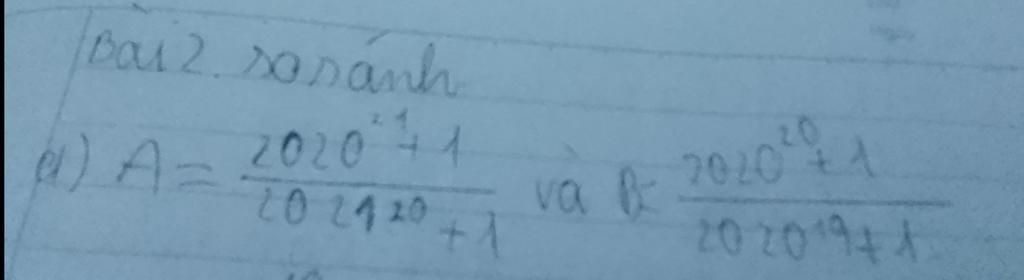 Bài 2. so sánh
a) A = \frac{2020^{21}+1}{2021^{20}+1} và B = \frac{2020^{20}+1}{2020^{19}+1}